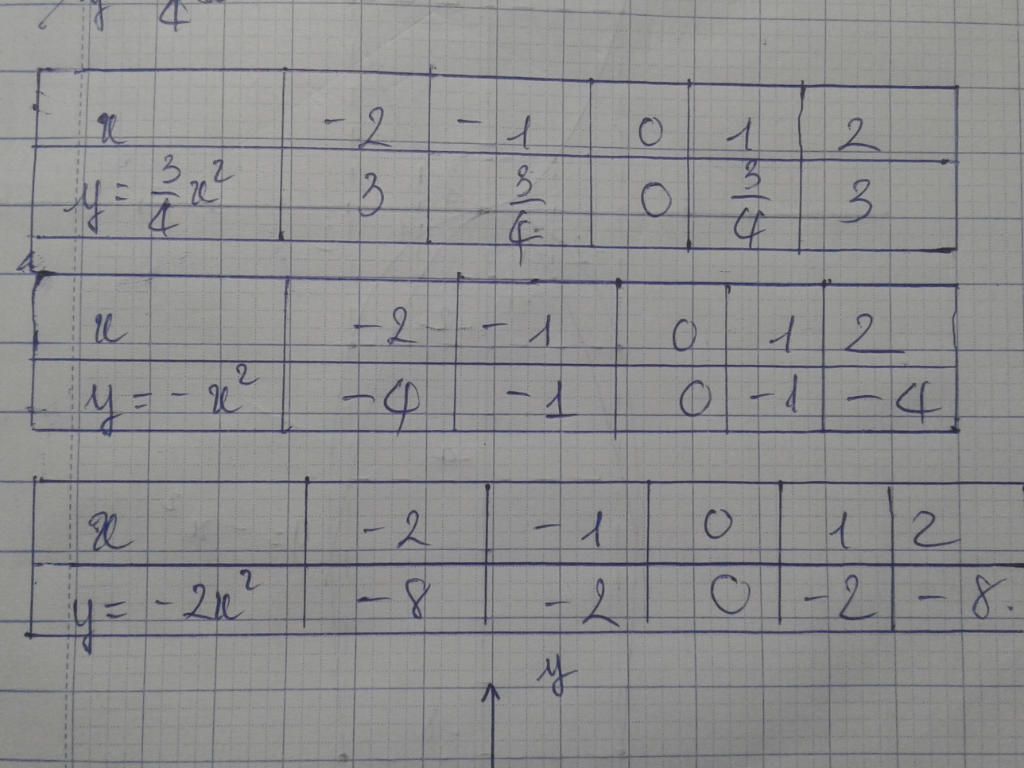 x -2 -1 0 1 2
y = 3/4 x² 3 3/4 0 3/4 3
x -2 -1 0 1 2
y = -x² -4 -1 0 -1 -4
x -2 -1 0 1 2
y = -2x² -8 -2 0 -2 -8.
y